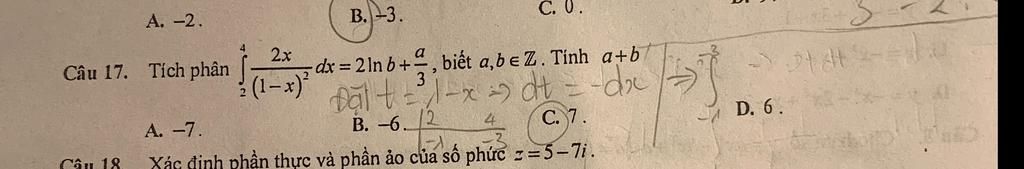 A. −2.   B. −3.   C. 0.
Câu 17. Tích phân ∫₂⁴ 2x/(1−x)² dx = 2 ln b + a/3, biết a, b ∈ ℤ. Tính a+b
Đặt t = 1−x ⇒ dt = −dx | ⇒ ∫₋₁⁻³
A. −7.   B. −6.   C. 7.   D. 6.
2   4
−1   −3
Câu 18. Xác định phần thực và phần ảo của số phức z = 5−7i.